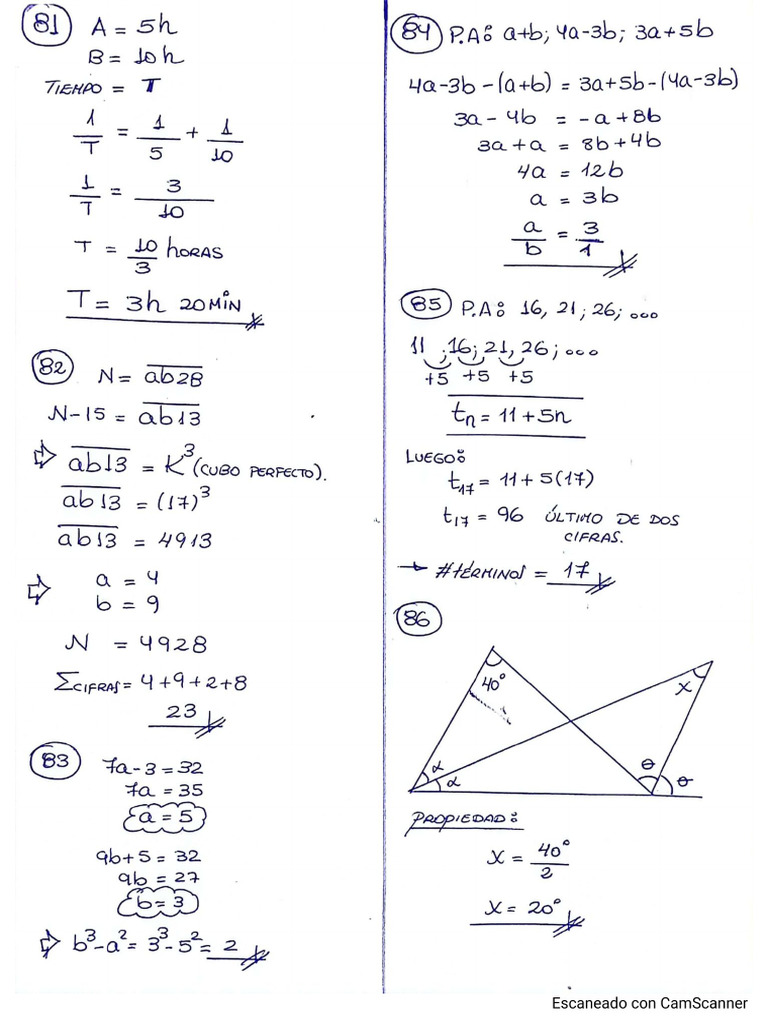 81 A = 5h
B = 10h
TIEMPO = T
1/T = 1/5 + 1/10
1/T = 3/10
T = 10/3 HORAS
T = 3h 20 MIN
82 N = ab28
N-15 = ab13
⇒ ab13 = K³ (CUBO PERFECTO).
ab13 = (17)³
ab13 = 4913
⇒ a = 4
b = 9
N = 4928
ΣCIFRAS = 4+9+2+8
23
83 7a-3 = 32
7a = 35
a = 5
9b+5 = 32
9b = 27
b = 3
⇒ b³-a² = 3³-5² = 2
84 P.A: a+b; 4a-3b; 3a+5b
4a-3b-(a+b) = 3a+5b-(4a-3b)
3a-4b = -a+8b
3a+a = 8b+4b
4a = 12b
a = 3b
a/b = 3/1
85 P.A: 16, 21; 26; ...
11; 16; 21, 26; ...
+5 +5 +5
tn = 11+5n
LUEGO:
t17 = 11+5(17)
t17 = 96 ÚLTIMO DE DOS
CIFRAS.
→ #TÉRMINOS = 17
86
40°
x
α
α
θ
θ
PROPIEDAD:
x = 40°/2
x = 20°
Escaneado con CamScanner